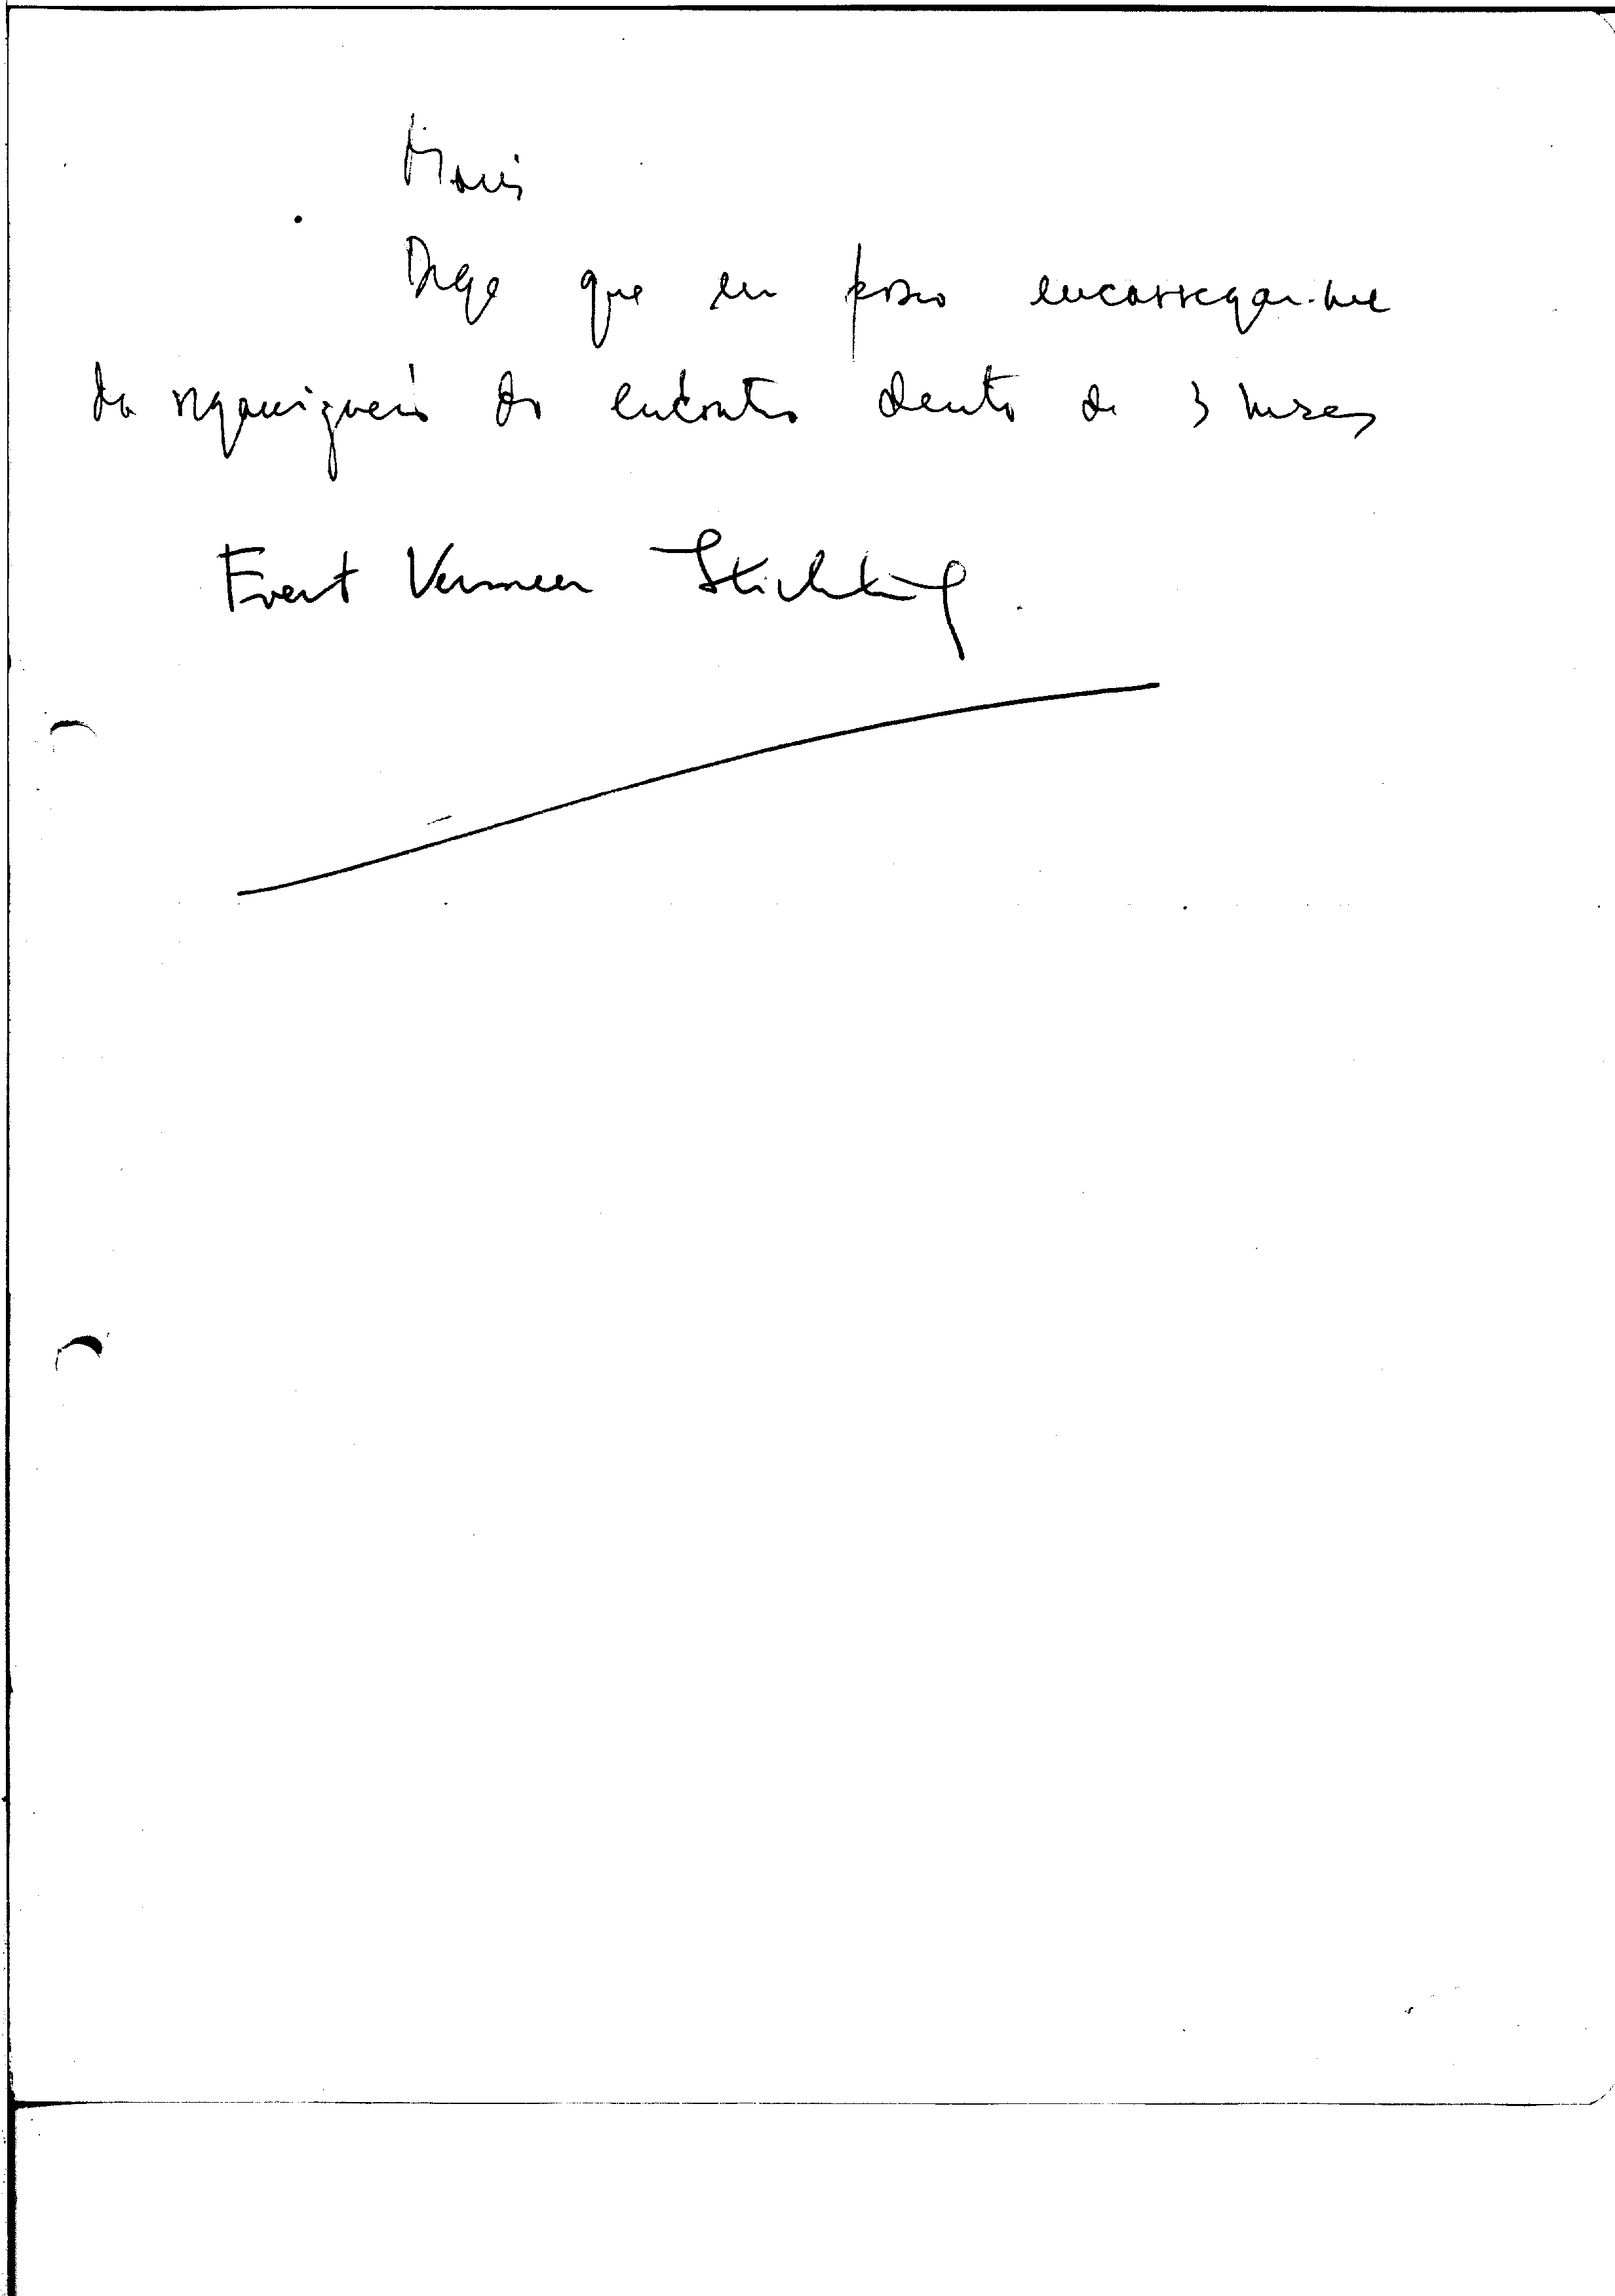 Diga que eu posso encarregar-me
da organização do encontro dentro de 3 meses
Evert Vermeer Stichting